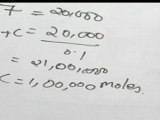 7 = 20,000
+C = 20,000
0.1
= 21,00,000
C = 1,00,000 moles.